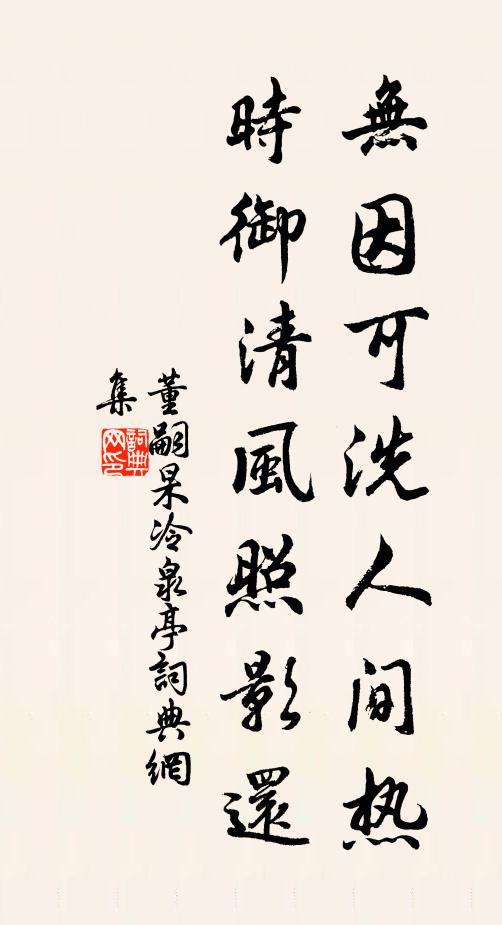 無因可洗人间热
時御清風照影還
董嗣杲冷泉亭詞典網
集
詞典
网印